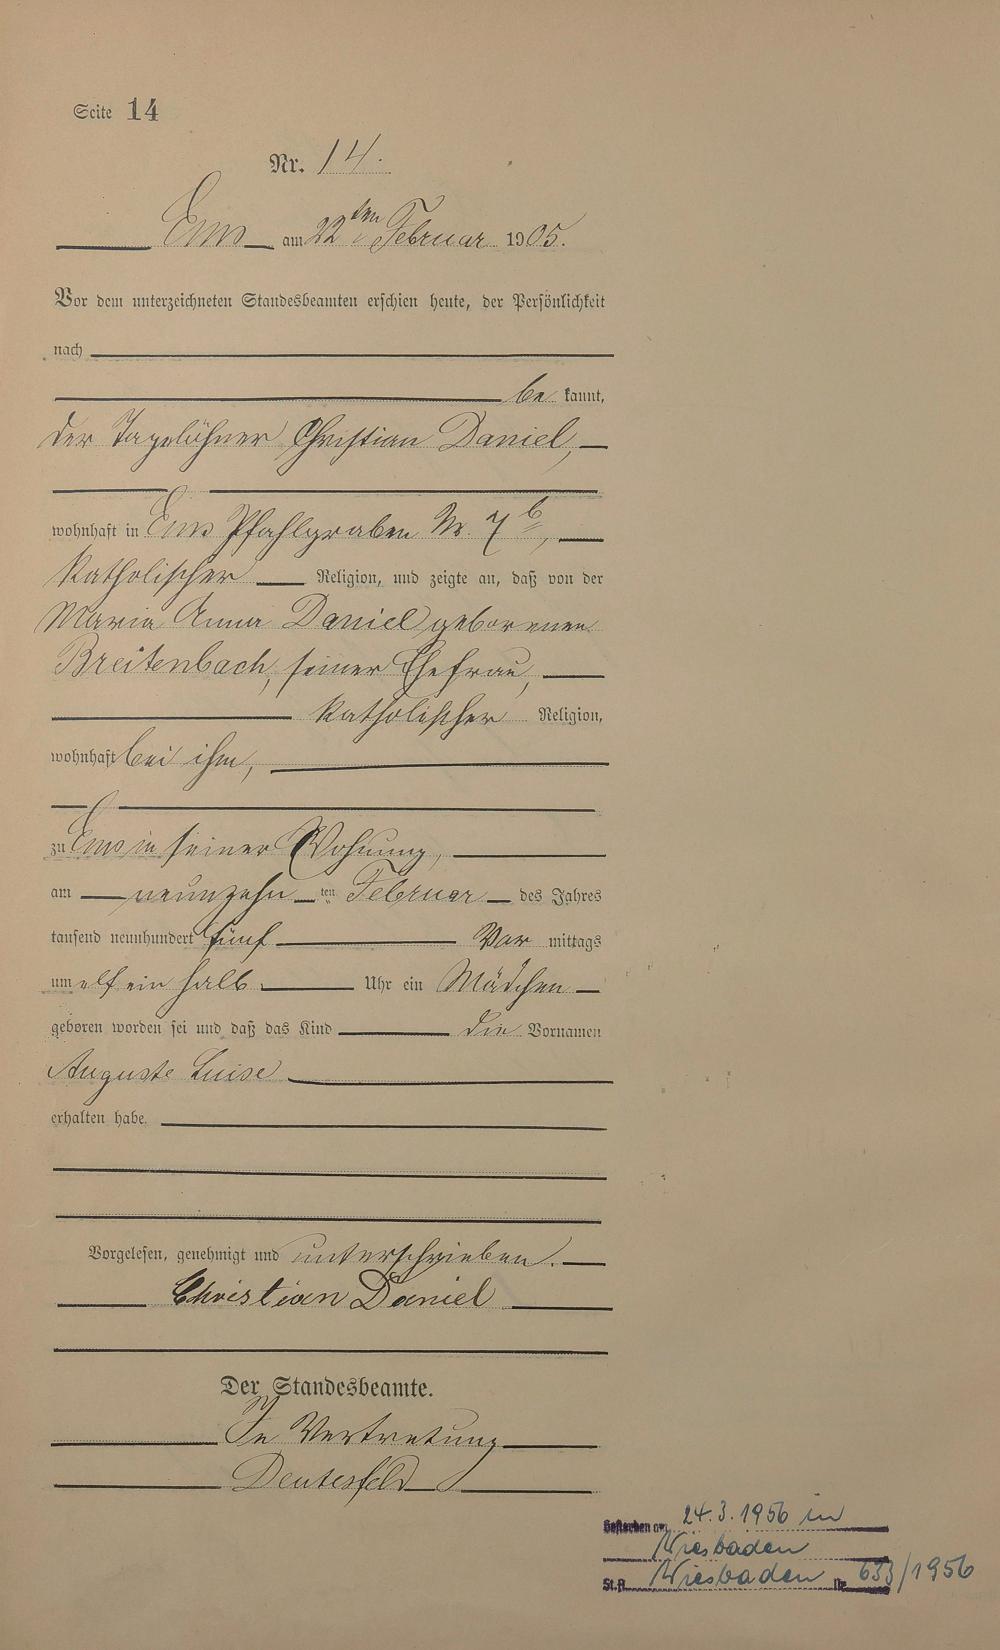 Seite 14
Nr. 14.
Ems am 22ten Februar 1905.
Vor dem unterzeichneten Standesbeamten erschien heute, der Persönlichkeit
nach
be kannt,
der Tagelöhner Christian Daniel,
wohnhaft in Ems Pfahlgraben Nr. 7b,
katholischer Religion, und zeigte an, daß von der
Maria Anna Daniel geborenen
Breitenbach, seiner Ehefrau,
katholischer Religion,
wohnhaft bei ihm,
zu Ems in seiner Wohnung,
am neunzehn ten Februar des Jahres
tausend neunhundert fünf Vor mittags
um elf ein halb Uhr ein Mädchen
geboren worden sei und daß das Kind die Vornamen
Auguste Luise
erhalten habe.
Vorgelesen, genehmigt und unterschrieben.
Christian Daniel
Der Standesbeamte.
In Vertretung
Deutesfeld
Gestorben am 24.3.1956 in
Wiesbaden
St.A. Wiesbaden Nr. 633/1956